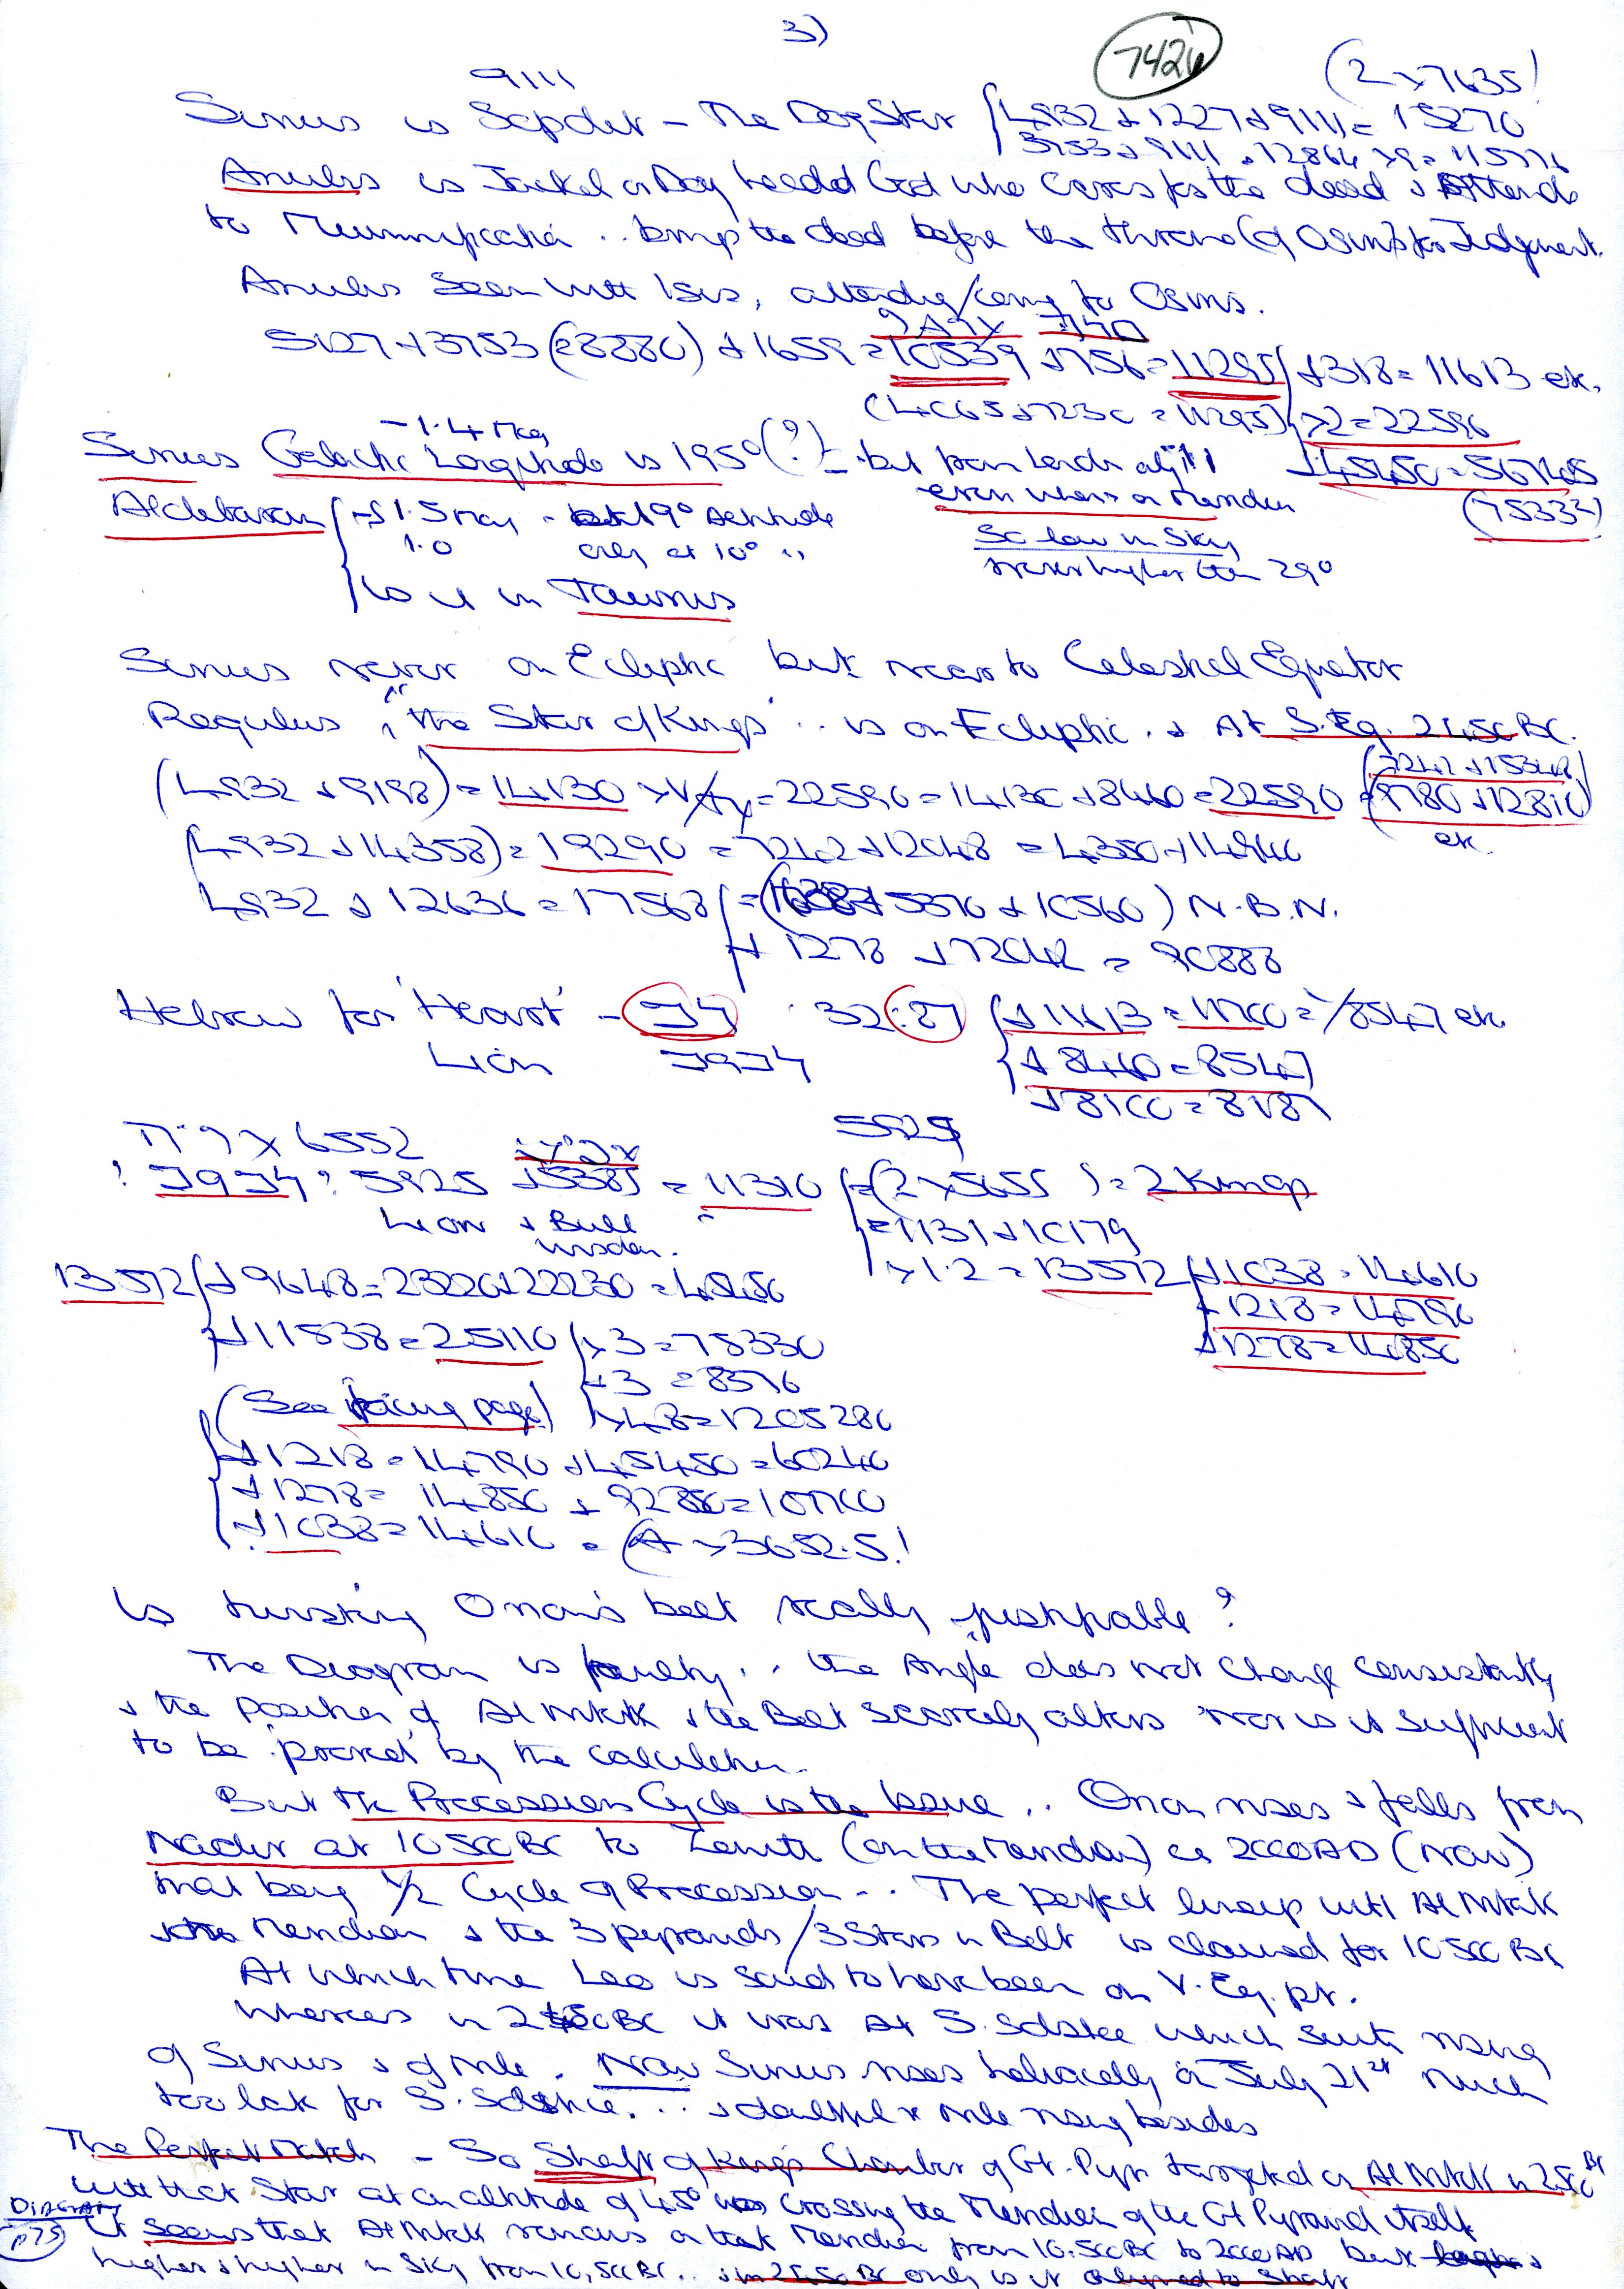 3)
7421
9111 (2 x 7635!
Sirius is Sepdet - The Dog Star 4932 + 1227 + 9111 = 15270
3753 + 9111 = 12864 x 9 = 115776
Anubis is Jackal or Dog headed God who cares for the dead & Attends
to Mummification .. brings the dead before the throne (of Osiris) for Judgment.
Anubis seen with Isis, attending/caring for Osiris.
5127 + 3753 (= 8880) + 1659 = 10539 + 756 = 11295 + 318 = 11613 etc.
(4065 + 7230 = 11295) x 2 = 22590
+ 45450 = 56745
(75332)
-1.4 Mag
Sirius Galactic Longitude is 195° (?) - but from Lends
even when on Meridian
Aldebaran 1.5 Mag - 19° Altitude
1.0 only at 10° "
So low in Sky
never higher than 29°
is in Taurus
Sirius never on Ecliptic but near to Celestial Equator
Regulus, "the Star of Kings" .. is on Ecliptic. & At S. Eq. 2450 BC.
(4932 + 9198) = 14130 = 22590 = 14130 + 8460 = 22590 = (9780 + 12810)
etc.
(4932 + 14358) = 19290 = 7242 + 12048 = 4350 + 14940
4932 + 12636 = 17568 = ( 5370 + 10560) N.B.N.
+ 1278 + 72042 = 90888
Hebrew for 'Heart' - 32:87 + 11613 = 11700 = 8547 etc
Lion + 8460 = 8547
+ 8100 = 8187
6552 5925
5925 + 5385 = 11310 = (2 x 5655) = 2 Kings
Lion & Bull = 1131 + 10179
wisdom. x 1.2 = 13572 + 1038 = 14610
+ 1218 = 14790
+ 1278 = 14850
13572 + 9648 = 23220 + 22230 = 45450
+ 11538 = 25110 x 3 = 75330
÷ 3 = 8370
(See facing page) x 48 = 1205280
+ 1218 = 14790 + 45450 = 60240
+ 1278 = 14850 + 92850 = 107700
+ 1038 = 14610 = (4 x 3652.5!
Is twisting Orion's belt really justifiable?
The Diagram is faulty .. the Angle does not change consistently
& the position of Al Nitak & the Belt scarcely alters nor is it sufficient
to be 'proved' by the calculation.
But the Precession Cycle is the issue .. Orion rises & falls from
Nadir at 10500 BC to Zenith (on the Meridian) ca 2000 AD (now)
that being 1/2 Cycle of Precession .. The perfect lineup with Al Nitak
& the Meridian & the 3 pyramids / 3 Stars in Belt is claimed for 10500 BC
At which time Leo is said to have been on V. Eq. pt.
whereas in 2450 BC it was At S. Solstice which suits rising
of Sirius & of Nile. Now Sirius rises heliacally on July 21st much
too late for S. Solstice. .. & doubtful re Nile rising besides
The Perfect Match - So Shaft of King's Chamber of Gt. Pyr targeted on Al Nitak in 2450 BC
with that Star at an altitude of 45° crossing the Meridian of the Gt Pyramid itself
Diagram It seems that Al Nitak remains on that Meridian from 10.500 BC to 2000 AD but
p75 higher & higher in Sky from 10,500 BC .. & in 2450 BC only is it aligned to Shaft